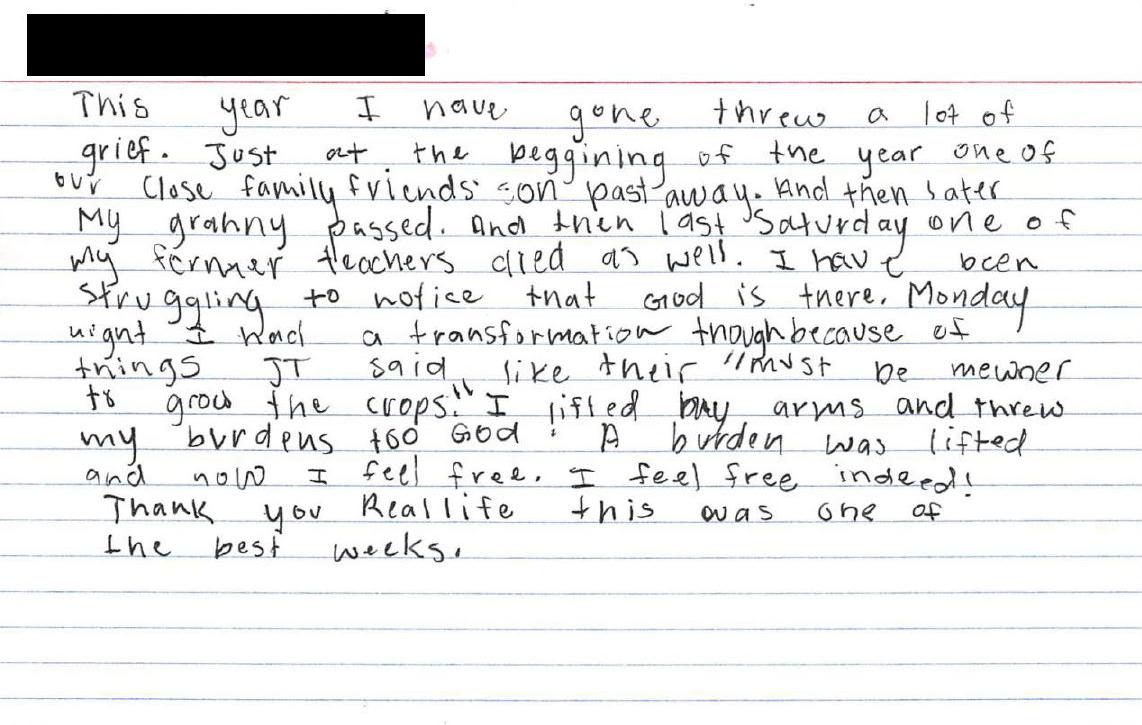 This year I have gone threw a lot of
grief. Just at the beggining of the year one of
our Close family friends son past away. And then later
My granny passed. And then last Saturday one of
my former teachers died as well. I have been
struggling to notice that God is there. Monday
night I had a transformation though because of
things JT said like their "must be
to grow the crops." I lifted my arms and threw
my burdens too God! A burden was lifted
and now I feel free. I feel free indeed!
Thank you Reallife this was one of
the best weeks.